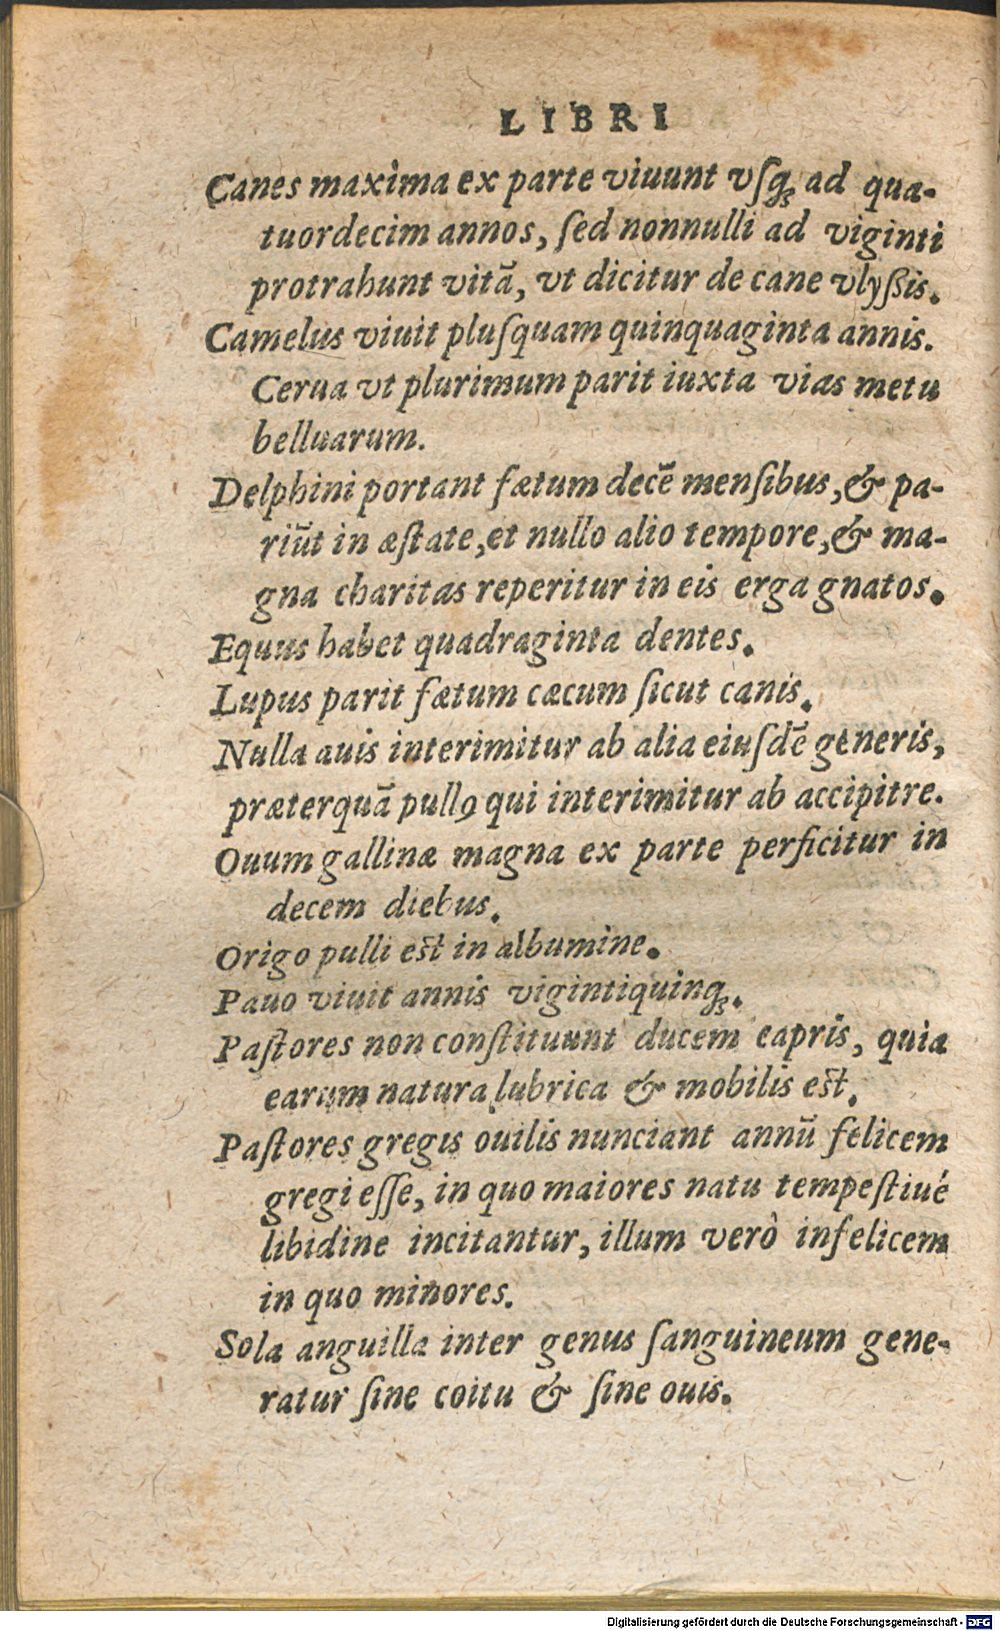 LIBRI
Canes maxima ex parte viuunt vſq; ad qua-
tuordecim annos, ſed nonnulli ad viginti
protrahunt vitã, vt dicitur de cane vlyßis.
Camelus viuit pluſquam quinquaginta annis.
Cerua vt plurimum parit iuxta vias metu
belluarum.
Delphini portant fætum decẽ menſibus, & pa-
riũt in æſtate, et nullo alio tempore, & ma-
gna charitas reperitur in eis erga gnatos.
Equus habet quadraginta dentes.
Lupus parit fætum cæcum ſicut canis.
Nulla auis interimitur ab alia eiuſdẽ generis,
præterquã pullꝯ qui interimitur ab accipitre.
Ouum gallinæ magna ex parte perficitur in
decem diebus.
Origo pulli eſt in albumine.
Pauo viuit annis vigintiquinq;.
Paſtores non conſtituunt ducem capris, quia
earum natura lubrica & mobilis eſt.
Paſtores gregis ouilis nunciant annũ felicem
gregi eſſe, in quo maiores natu tempeſtiué
libidine incitantur, illum verò infelicem
in quo minores.
Sola anguilla inter genus ſanguineum gene-
ratur ſine coitu & ſine ouis.
Digitalisierung gefördert durch die Deutsche Forschungsgemeinschaft - DFG